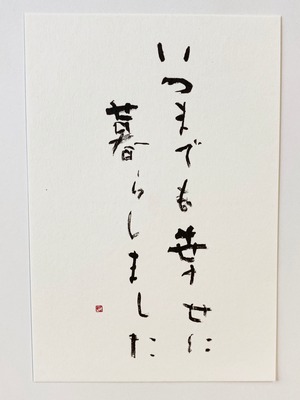 いつまでも幸せに
暮らしました